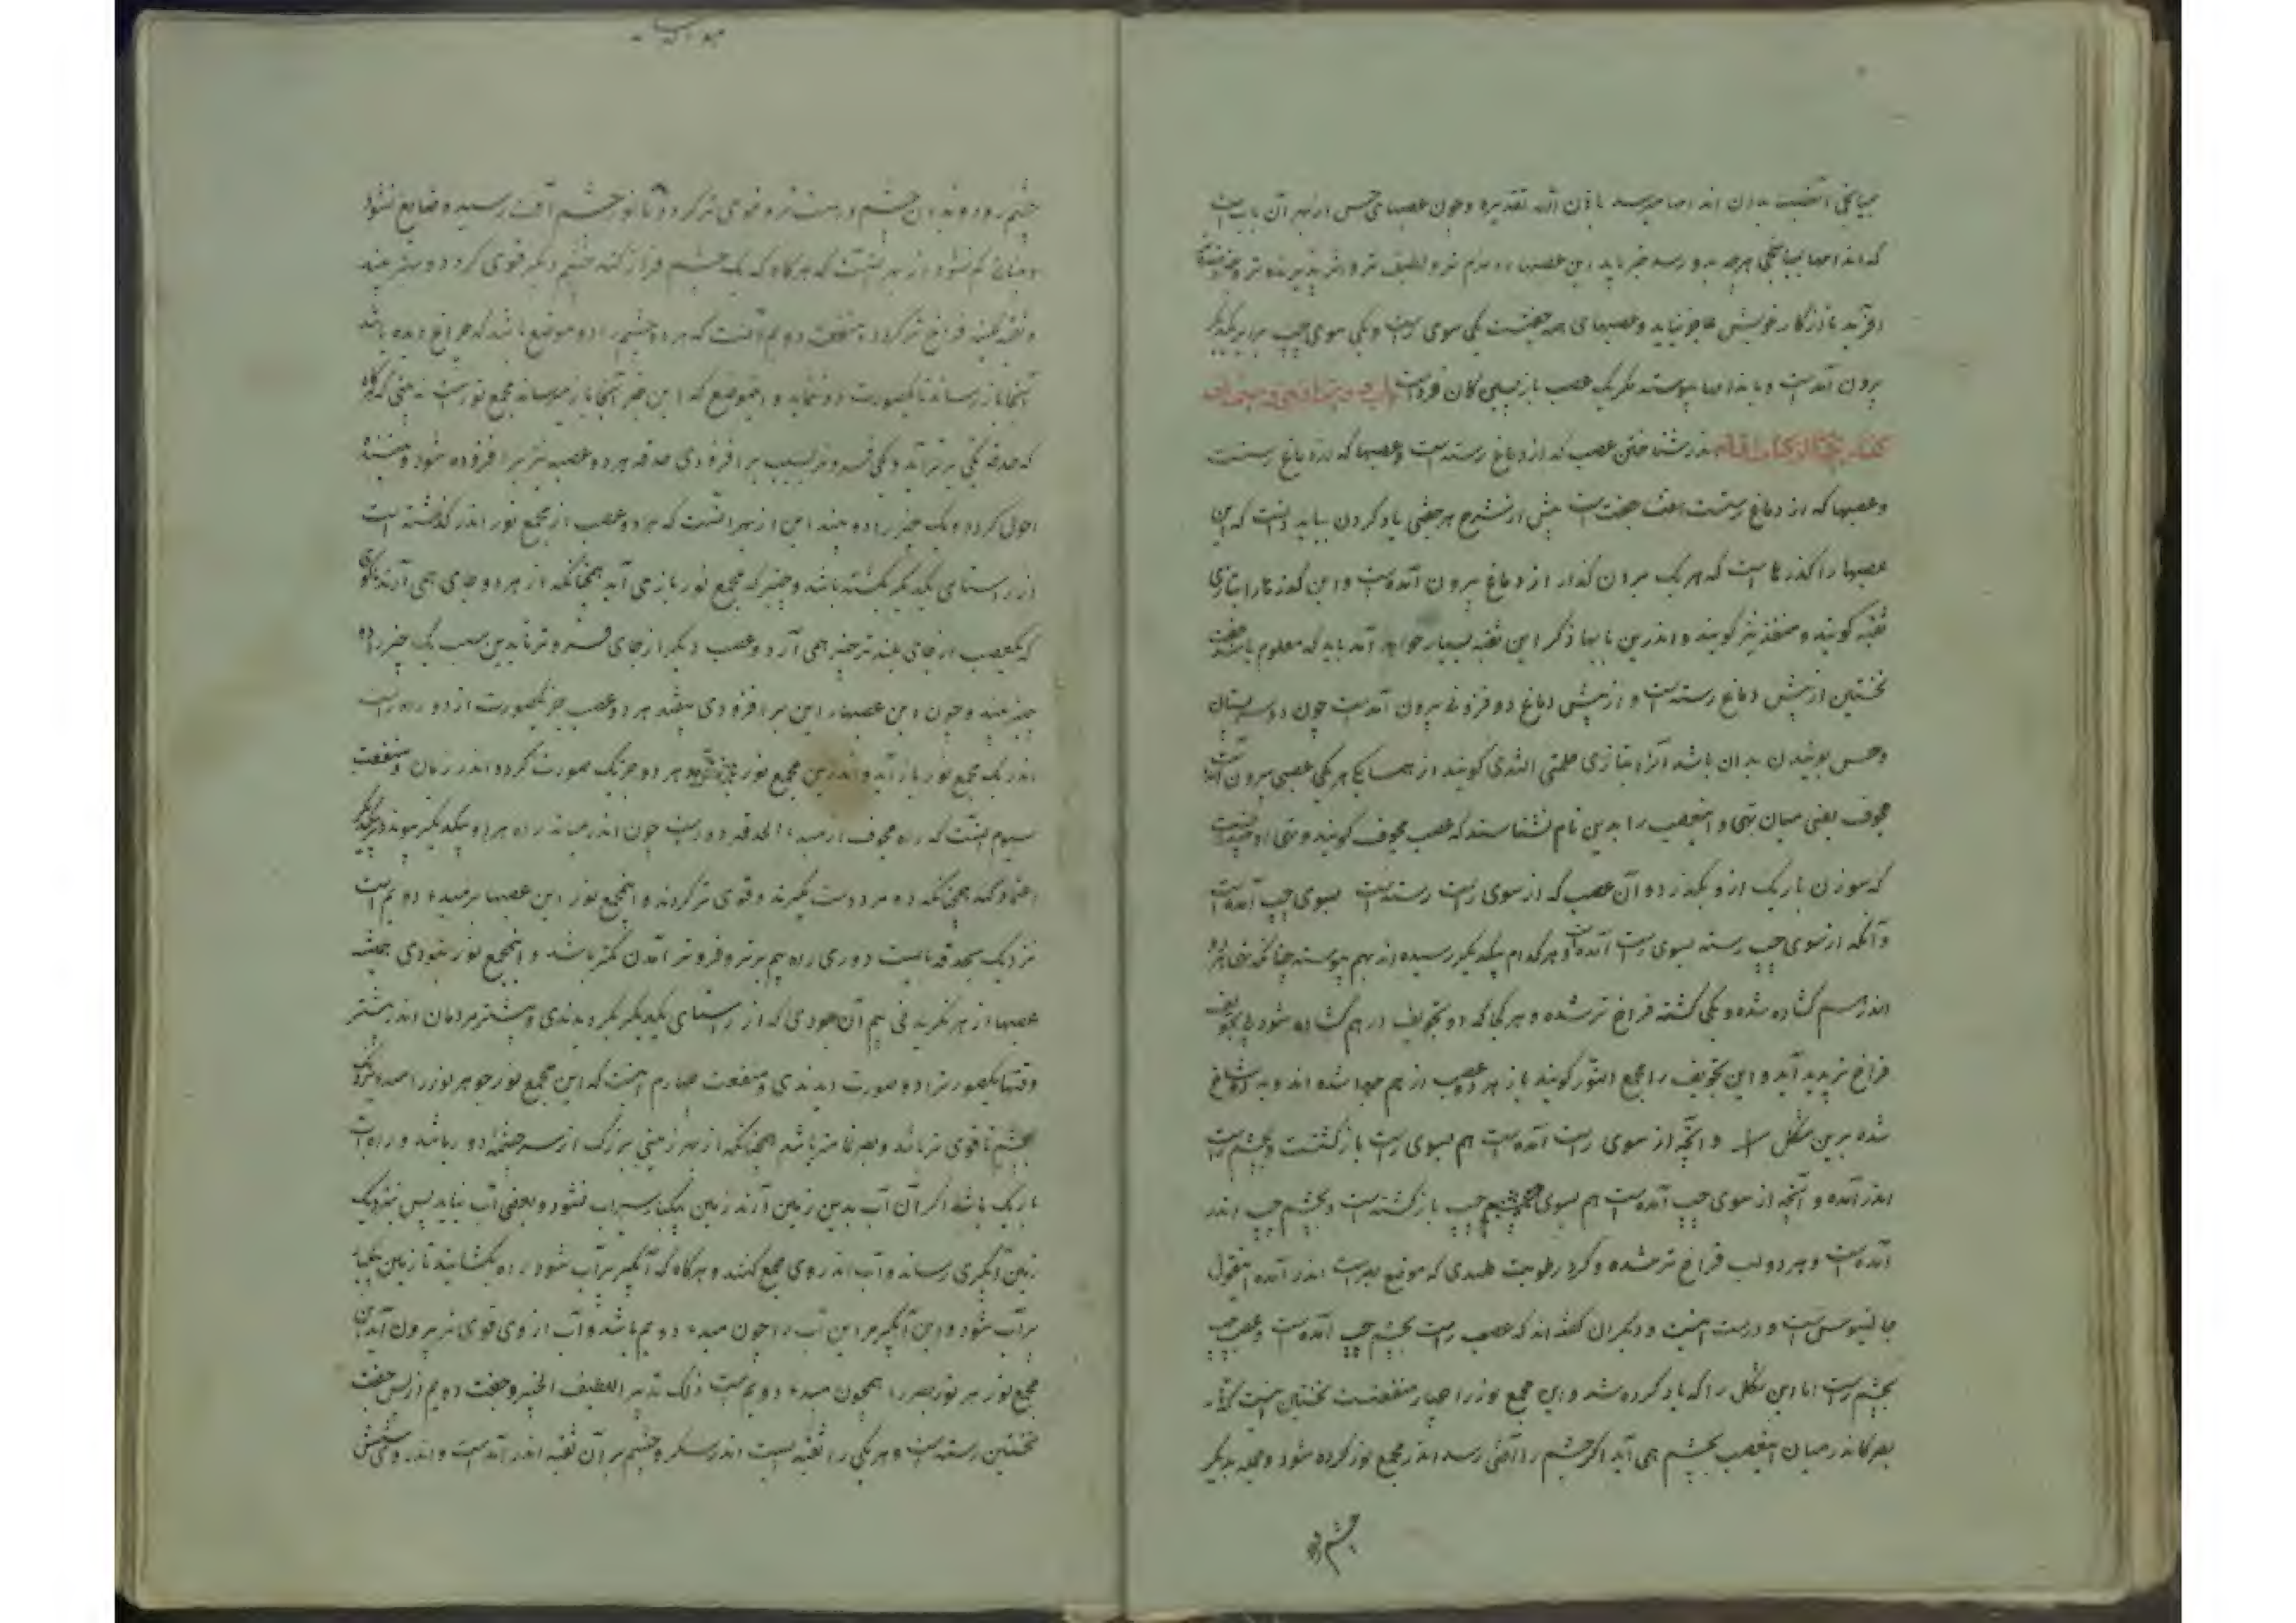 که اندامها بمیانجی هرچه بدو رسد خبر یابد این عصبها را نرم تر و لطیف تر و اثر پذیرنده تر
آفرید تا از کار خویش عاجز نیاید و عصبهای همه جفتست یکی سوی راست و یکی سوی چپ برابر یکدیگر
برون آمدست و باندامها پیوسته مگر یک عصب بازپسین کان فردست
اندر شناختن عصب که از دماغ رسته است و عصبها که از دماغ رستست
و عصبها که از دماغ رستست هفت جفت است پیش از شرح هر جفتی یاد کردن بباید دانست که این
عصبها را گذرهاست که هر یک برون گذار از دماغ بیرون آمده است و این گذرها را بتازی
ثقبه گویند و منفذ نیز گویند و اندرین بابها ذکر این ثقبه بسیار خواهد آمد باید که معلوم باشد جفت
نخستین از پیش دماغ رسته است و از پیش دماغ دو فزونی بیرون آمدست چون دو سر پستان
و حس بوئیدن بدان باشد آنرا بتازی حلمتی الثدی گویند از همسایگی هر یکی عصبی بیرون آمده است
مجوف یعنی میان تهی و اینعصب را بدین نام شناسند که عصب مجوف گویند و تهی او چندانست
که سوزن باریک ازو بگذرد و آن عصب که از سوی راست رسته است بسوی چپ آمده است
و آنکه از سوی چپ رسته بسوی راست آمده است و هر کدام بیکدیگر رسیده اند بهم پیوسته چنانکه
اندر هم گشاده شده و یکی گشته فراخ تر شده و هر کجا که دو تجویف در هم گشاده شود تجویفی
فراخ تر پدید آید و این تجویف را مجمع النور گویند باز هر دو عصب از هم جدا شده اند و به دو شاخ
شده برین شکل و آنچه از سوی راست آمده است هم بسوی راست بازگشتست و بچشم راست
اندر آمده و آنچه از سوی چپ آمده است هم بسوی چپ بازگشته است و بچشم چپ اندر
آمده است و هر دو لب فراخ تر شده و گرد رطوبت جلیدی که موضع بصر است اندر آمده اینقول
جالینوس است و درست اینست و دیگران گفته اند که عصب راست بچشم چپ آمده است و عصب چپ
بچشم راست اما این شکل را که یاد کرده شد و این مجمع نور را چهار منفعتست نخستین اینست که
بصر کاندر میان اینعصب بچشم همی آید اگر چشم را آفتی رسد اندر مجمع نور گرد شود و جمله بدیگر
چشم رود
چشم رود و بدان چشم درست تر و قوی تر گردد تا نور چشم آفت رسیده ضایع نشود
و میان گم نشود از بهر اینست که هرگاه که یک چشم فراز کنند چشم دیگر قوی گردد و بهتر بیند
و ثقبه عنبیه فراخ تر گردد منفعت دوم آنست که هر دو چشم را دو موضع باشد که
آنجا باز رساند تا یکصورت دو ننماید و آنموضع که این خبر آنجا باز میرساند مجمع نورست نه بینی که هرگاه
که حدقه یکی برتر آید و یکی فروتر بسبب برافزودی حدقه هر دو عصبه نیز برافزوده شود و بیننده
احول گردد و یک چیز را دو بیند این از بهر آنست که هر دو عصب از مجمع نور اندر گذشته است
از راستای یکدیگر بگشته باشد و خبر که مجمع نور باز می آید همچنانکه از هر دو جای همی آرند
که یکعصب از جای بلندتر خبر همی آرد و عصب دیگر از جای فروتر تا بدین سبب یک چیز را دو
چیز بیند و چون این عصبها را این برافزودی نیفتد هر دو عصب خبر یکصورت از دو راه راست
اندر یک مجمع نور باز آید و اندرین مجمع نور هر دو خبر یک صورت گردد اندر زمان و منفعت
سیوم اینست که راه مجوف از مبداء تا حدقه دورست چون اندر میانه راه هر دو بیکدیگر پیوندند و بیکدیگر
اعتماد کنند همچنانکه دو مرد دست بگیرند و قوی تر گردند و اینمجمع نور این عصبها را مبداء دویم است
نزدیک بحدقه تا بسبب دوری راه هم برتر و فروتر آمدن کمتر باشد و اینمجمع نور نبودی همیشه
عصبها از هر نگریدنی هم آن بودی که از راستای یکدیگر بگردیدندی و بیشتر مردمان اندر بیشتر
وقتها یکصورت را دو صورت دیدندی و منفعت چهارم اینست که این مجمع نور جوهر نور را
بچشم تا قوی تر باشد و بصر تمامتر باشد همچنانکه از بهر زمینی بزرگ از سر چشمه دور باشد و راه آب
باریک باشد اگر آن آب بدین زمین آرند زمین یکجا سیراب نشود و بعضی آب نیاید پس نزدیک
زمین آبگیری رساند و آب اندر وی جمع کنند و هرگاه که آبگیر پر آب شود راه بگشایند تا زمین یکجا
پر آب شود و این آبگیر مر این آب را چون مبداء دویم باشد و آب از وی قوی تر برون آید این
مجمع نور مر نور بصر را همچون مبداء دویم است ذلک تدبیر اللطیف الخبیر و جفت دویم از پس جفت
نخستین رسته است و هر یکی را ثقبه ایست اندر